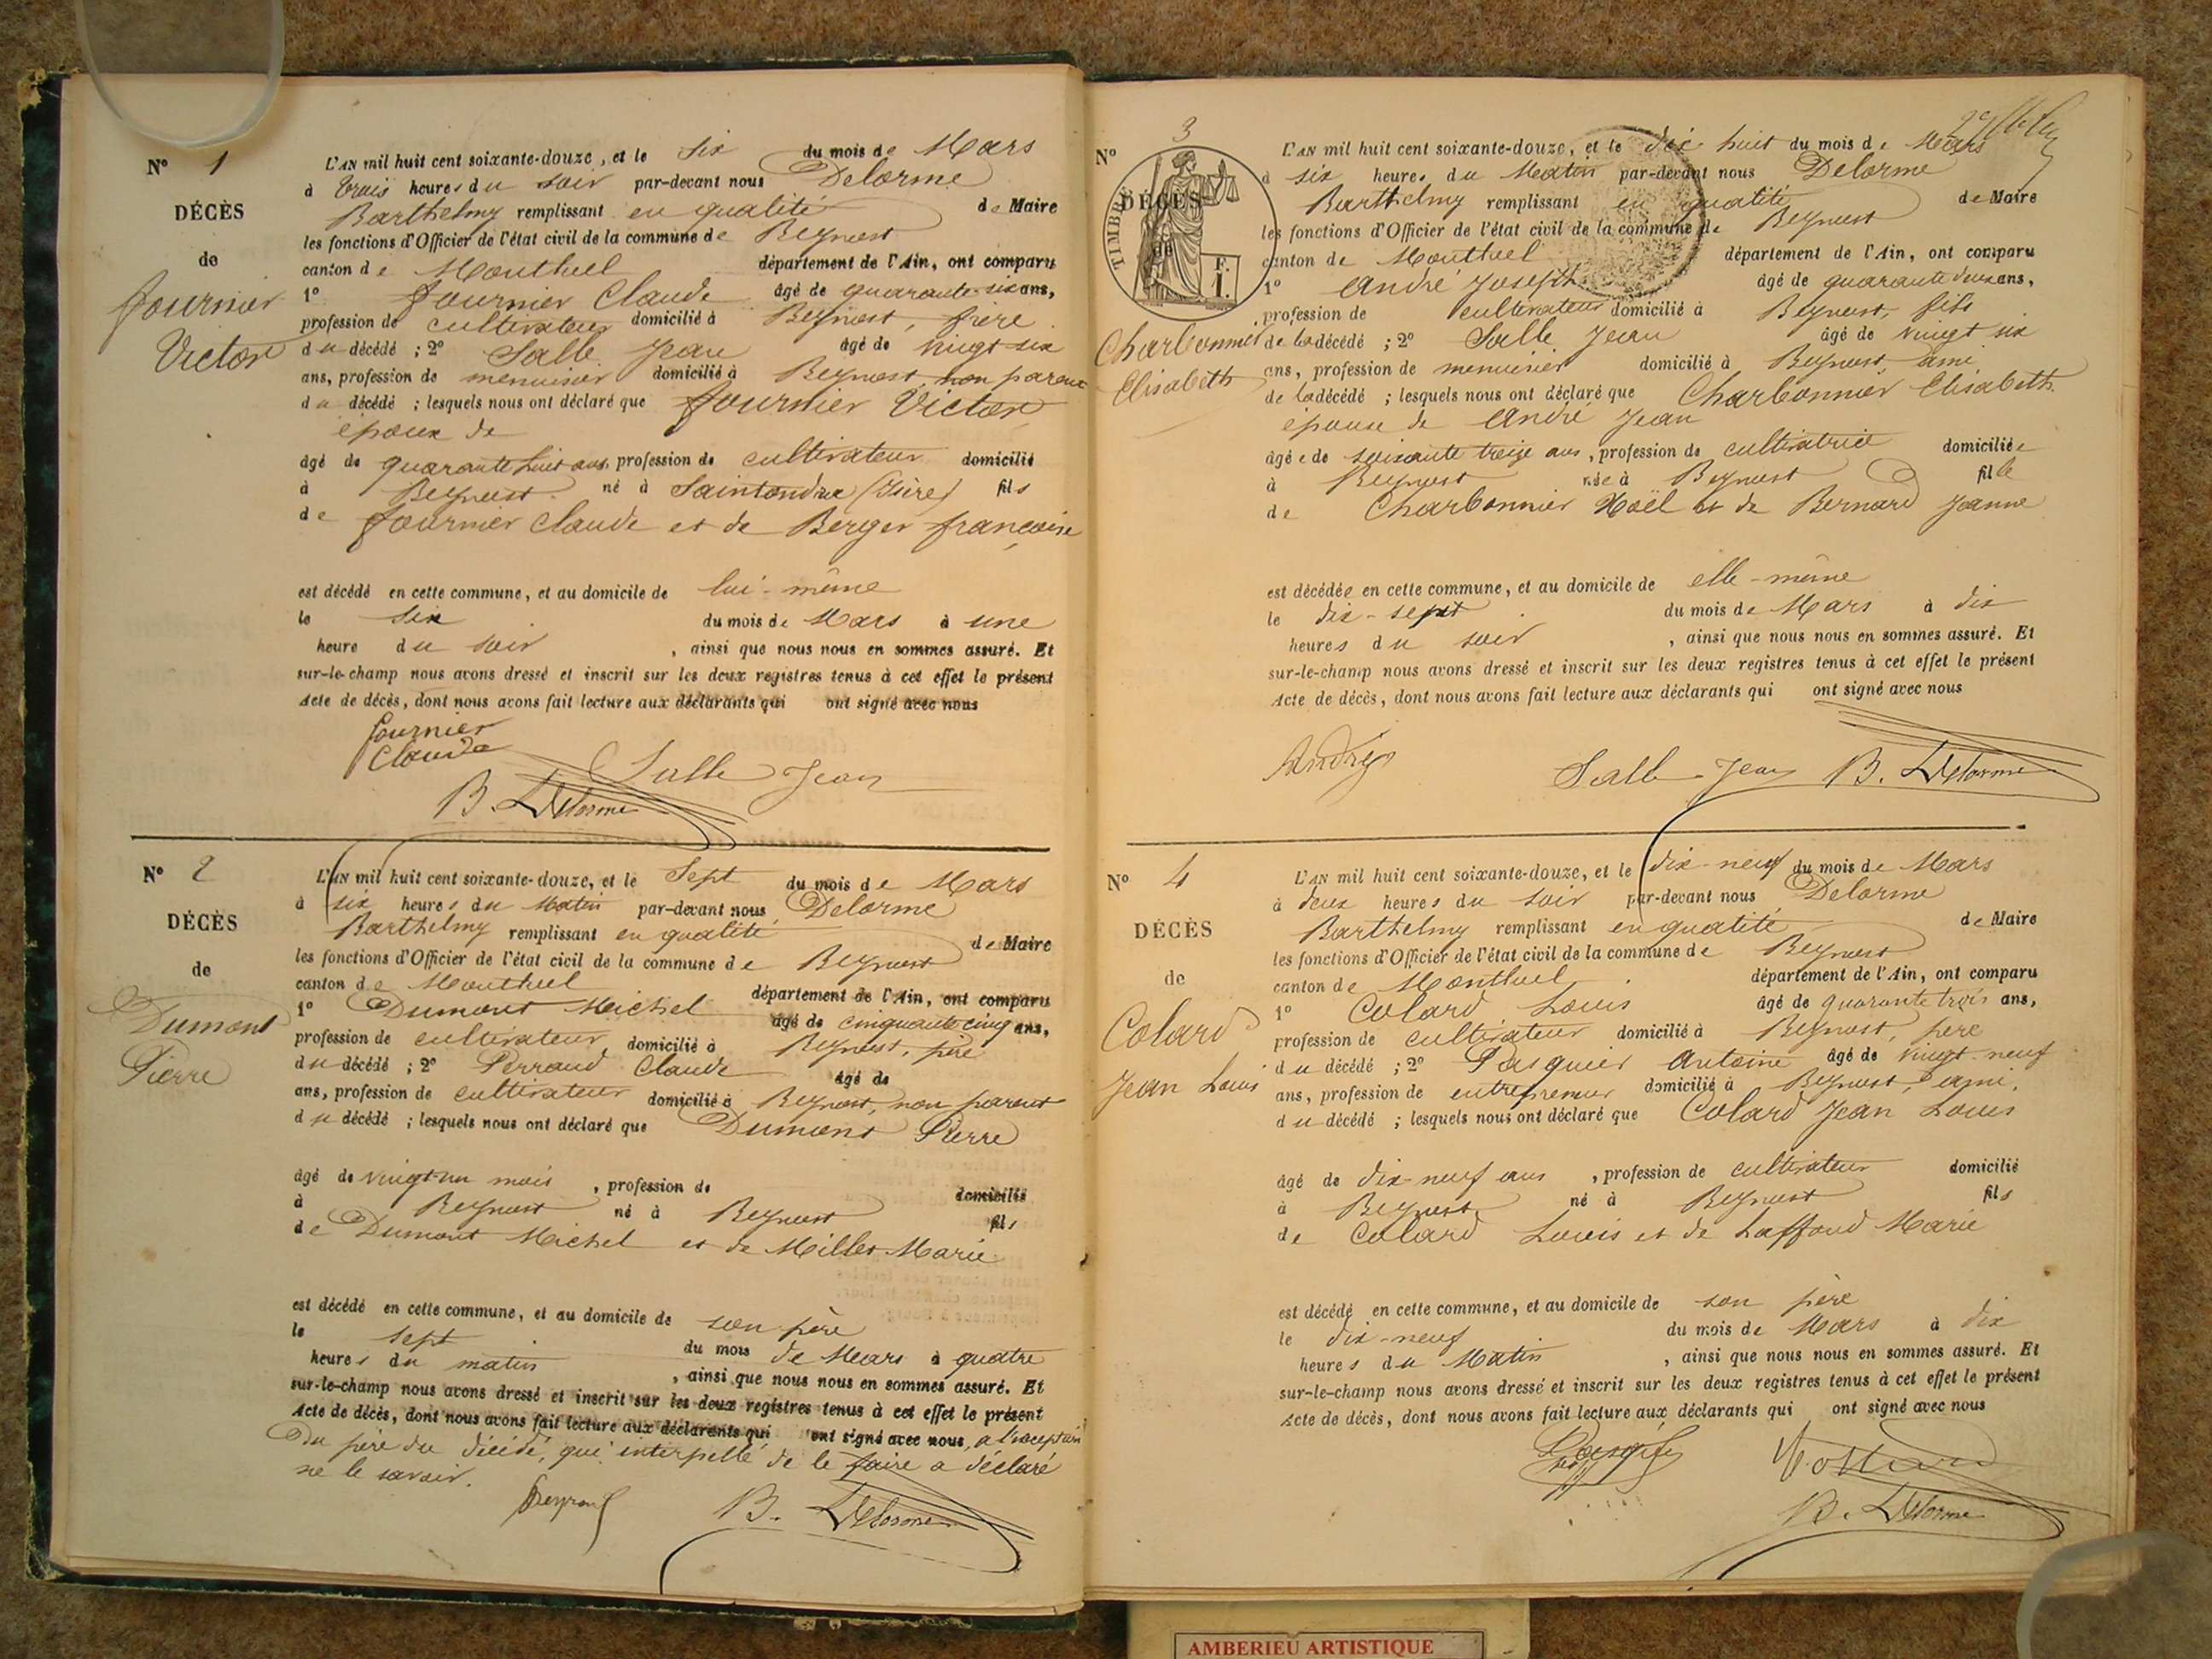 N° 1
DÉCÈS
de
Fournier
Victor
L'AN mil huit cent soixante-douze, et le six du mois de Mars
à trois heures du soir par-devant nous Delorme
Barthelmy remplissant en qualité de Maire
les fonctions d'Officier de l'état civil de la commune de Beynost
canton de Montluel département de l'Ain, ont comparu
1° Fournier Claude âgé de quarante-six ans,
profession de cultivateur domicilié à Beynost, frère
du décédé ; 2° Salle Jean âgé de vingt six
ans, profession de menuisier domicilié à Beynost non parent
du décédé ; lesquels nous ont déclaré que Fournier Victor
époux de
âgé de quarante huit ans, profession de cultivateur domicilié
à Beynost né à (Isère) fils
de Fournier Claude et de Berger françoise
est décédé en cette commune, et au domicile de lui-même
le six du mois de Mars à une
heure du soir , ainsi que nous nous en sommes assuré. Et
sur-le-champ nous avons dressé et inscrit sur les deux registres tenus à cet effet le présent
Acte de décès, dont nous avons fait lecture aux déclarants qui ont signé avec nous
fournier
Claude
Salle Jean
B. Delorme
N° 2
DÉCÈS
de
Dumont
Pierre
L'AN mil huit cent soixante-douze, et le Sept du mois de Mars
à six heures du Matin par-devant nous Delorme
Barthelmy remplissant en qualité de Maire
les fonctions d'Officier de l'état civil de la commune de Beynost
canton de Montluel département de l'Ain, ont comparu
1° Dumont Michel âgé de cinquante cinq ans,
profession de cultivateur domicilié à Beynost, père
du décédé ; 2° Perraud Claude âgé de
ans, profession de cultivateur domicilié à Beynost, non parent
du décédé ; lesquels nous ont déclaré que Dumont Pierre
âgé de vingt-un mois , profession de domicilié
à Beynost né à Beynost fils
de Dumont Michel et de Millet Marie
est décédé en cette commune, et au domicile de son père
le sept du mois de Mars à quatre
heures du matin , ainsi que nous nous en sommes assuré. Et
sur-le-champ nous avons dressé et inscrit sur les deux registres tenus à cet effet le présent
Acte de décès, dont nous avons fait lecture aux déclarants qui ont signé avec nous, à l'exception
Du père du décédé, qui interpellé de le faire a déclaré
ne le savoir.
B. Delorme
N° 3
TIMBRE
DÉCÈS
de
F.
1.
Charbonnier
Elisabeth
L'AN mil huit cent soixante-douze, et le dix huit du mois de Mars
à six heures du Matin par-devant nous Delorme
Barthelmy remplissant en qualité de Maire
les fonctions d'Officier de l'état civil de la commune de Beynost
canton de Montluel département de l'Ain, ont comparu
1° André Joseph âgé de quarante deux ans,
profession de cultivateur domicilié à Beynost, fils
de la décédé ; 2° Salle Jean âgé de vingt six
ans, profession de menuisier domicilié à Beynost ami
de la décédé ; lesquels nous ont déclaré que Charbonnier Elisabeth
épouse de André Jean
âgée de soixante treize ans, profession de cultivatrice domiciliée
à Beynost née à Beynost fille
de Charbonnier Noël et de Bernard Jeanne
est décédée en cette commune, et au domicile de elle-même
le dix-sept du mois de Mars à dix
heures du soir , ainsi que nous nous en sommes assuré. Et
sur-le-champ nous avons dressé et inscrit sur les deux registres tenus à cet effet le présent
Acte de décès, dont nous avons fait lecture aux déclarants qui ont signé avec nous
Salle Jean B. Delorme
N° 4
DÉCÈS
de
Colard
Jean Louis
L'AN mil huit cent soixante-douze, et le dix-neuf du mois de Mars
à deux heures du soir par-devant nous Delorme
Barthelmy remplissant en qualité de Maire
les fonctions d'Officier de l'état civil de la commune de Beynost
canton de Montluel département de l'Ain, ont comparu
1° Colard Louis âgé de quarante trois ans,
profession de cultivateur domicilié à Beynost, père
du décédé ; 2° Pasquier Antoine âgé de vingt-neuf
ans, profession de entrepreneur domicilié à Beynost, ami,
du décédé ; lesquels nous ont déclaré que Colard Jean Louis
âgé de dix-neuf ans , profession de cultivateur domicilié
à Beynost né à Beynost fils
de Colard Louis et de Laffond Marie
est décédé en cette commune, et au domicile de son père
le dix-neuf du mois de Mars à dix
heures du Matin , ainsi que nous nous en sommes assuré. Et
sur-le-champ nous avons dressé et inscrit sur les deux registres tenus à cet effet le présent
Acte de décès, dont nous avons fait lecture aux déclarants qui ont signé avec nous
B. Delorme
AMBERIEU ARTISTIQUE